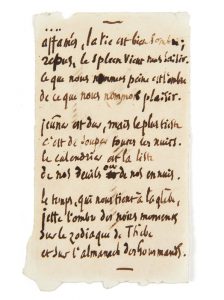 affamés, la vie est bien sombre ;
repus, le spleen vient nous saisir.
ce que nous nommons peine est l'ombre
de ce que nous nommons plaisir.
jeûner est dur, mais le plus triste
c'est de souper toutes les nuits.
le calendrier est la liste
de nos deuils ou de nos ennuis.
le temps, qui nous tient à la glèbe,
jette l'ombre des noirs moments
sur le zodiaque de Thèbe
et sur l'almanach des Gourmands.